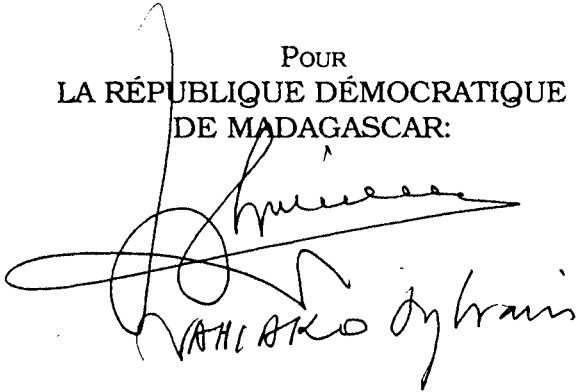 POUR
LA RÉPUBLIQUE DÉMOCRATIQUE
DE MADAGASCAR:
VAHIAKO Sylvain